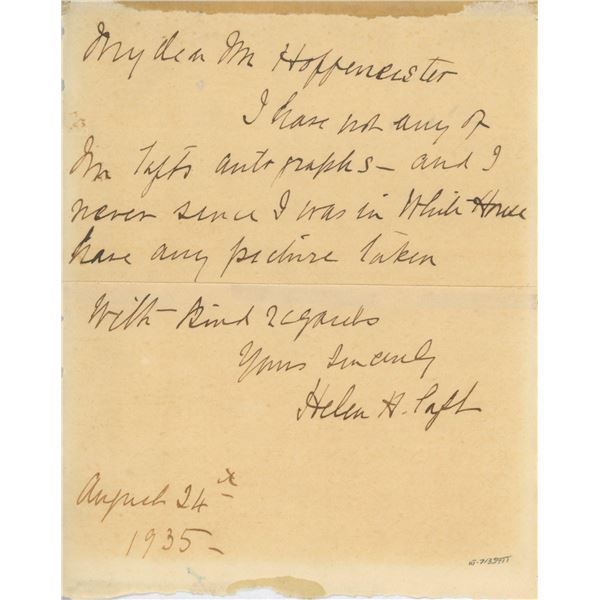 My dear Mr Hoffmeister
I have not any of
Mr Tafts autographs – and I
never since I was in White House
have any picture taken
With – Kind regards
Yours Sincerely
Helen H. Taft
August 24th
1935 –